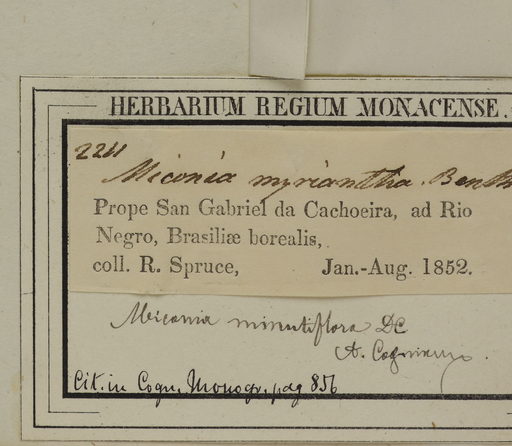 HERBARIUM REGIUM MONACENSE.
Miconia myriantha. Benth
Prope San Gabriel da Cachoeira, ad Rio
Negro, Brasiliæ borealis,
coll. R. Spruce, Jan.-Aug. 1852.
Miconia minutiflora DC
A. Cogniaux.
Cit. in Cogn. Monogr. pag 836